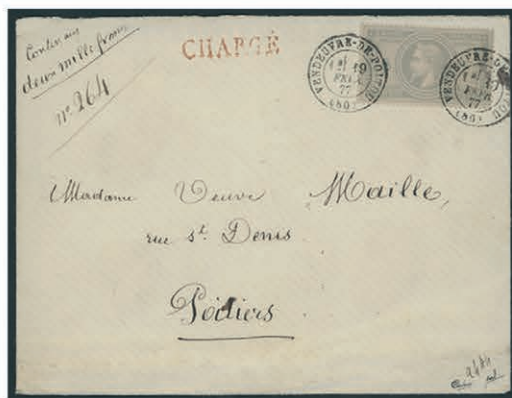 Contenant
deux mille francs
n° 264
CHARGÉ
VENDEUVRE-DE-POITOU
19
FEVR
77
(80)
VENDEUVRE-DE-POITOU
19
FEVR
77
(80)
Madame Veuve Maille,
rue St. Denis
Poitiers